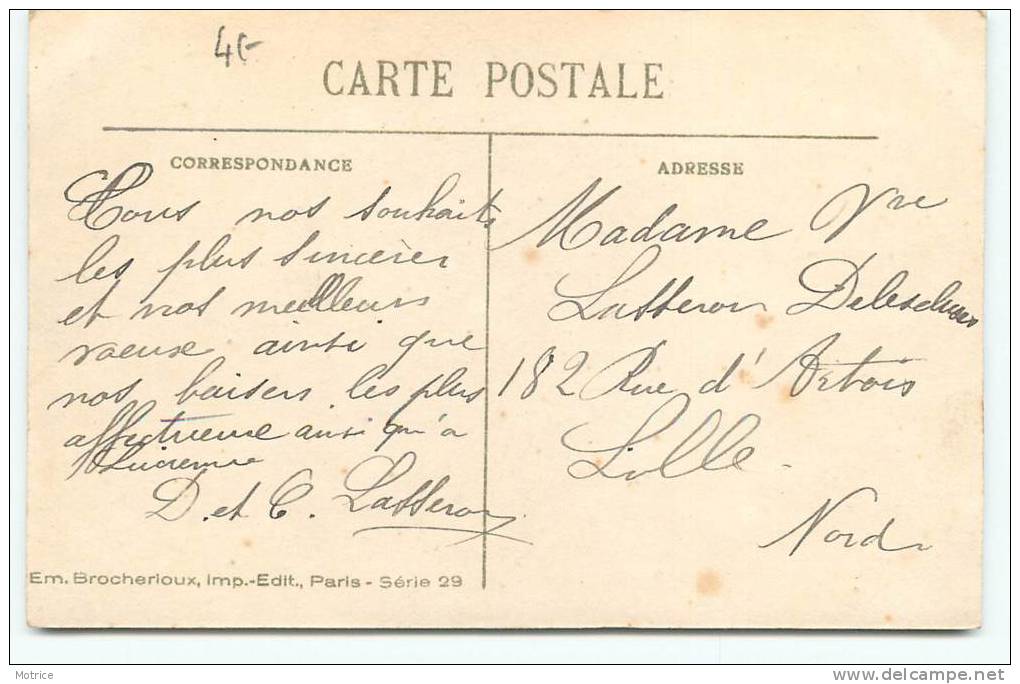 4f-
CARTE POSTALE
CORRESPONDANCE
Tous nos souhaits
les plus sincères
et nos meilleurs
voeux ainsi que
nos baisers les plus
affectueuse ainsi qu'a
Lucienne
D. et C. Lasseron
Em. Brocherioux, Imp.-Edit., Paris - Série 29
ADRESSE
Madame Vve
Lasseron Delescluses
182 Rue d'Artois
Lille.
Nord
Motrice
www.delcampe.net